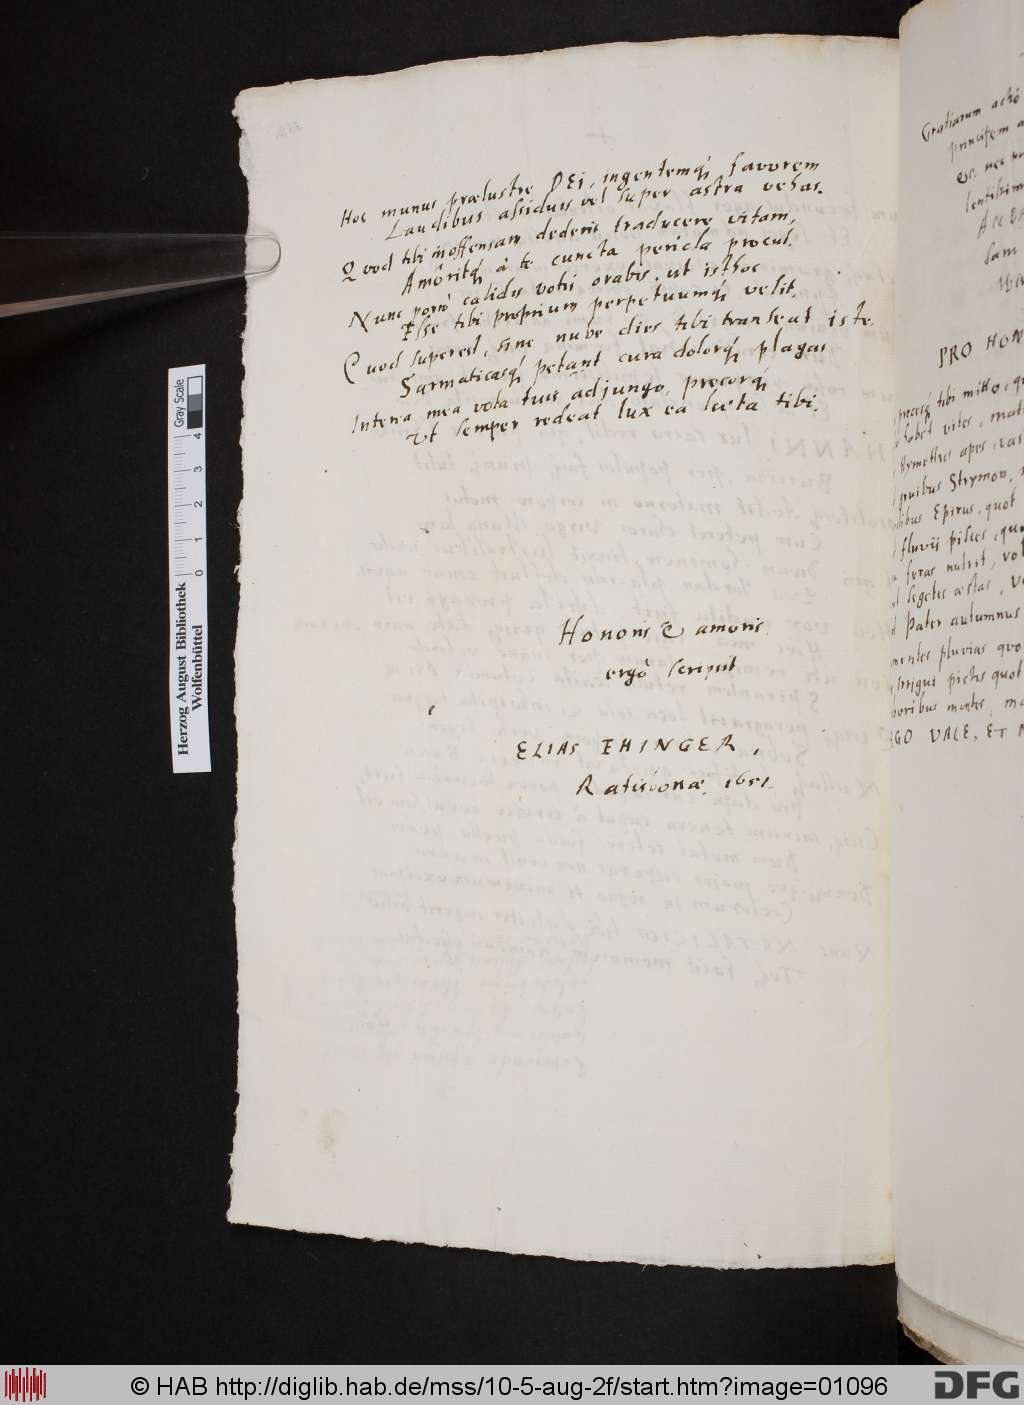 Hoc munus prælustre DEi, ingentemq́; favorem
Laudibus assiduis vel super astra vehas.
Quod tibi inoffensam dederit traducere vitam,
Amôritq́; à te cuncta pericla procul.
Nunc porrò calidis votis orabis, ut isthoc
Esse tibi proprium perpetuumq́; velit.
Quod superest, sine nube dies tibi transeat iste
Sarmaticasq́; petant cura dolorq́; plagas
Interea mea vota tuis adjungo, precorq́;
Ut semper redeat lux ea læta tibi.
Honoris & amoris
ergò scripsit
ELIAS EHINGER,
Ratisbonæ. 1651.
Gratiarum actio
principem
PRO HON
precesq́; tibi mitto,
habet vites,
Hymettus apes,
gruibus Strymon,
Epirus, quot
fluvij pisces,
feras nutrit,
segetes æstas,
Pater autumnus
pluvias quo
pictis quot
VALE, ET
Gray Scale
0 1 2 3 4
Herzog August Bibliothek
Wolfenbüttel
© HAB http://diglib.hab.de/mss/10-5-aug-2f/start.htm?image=01096
DFG